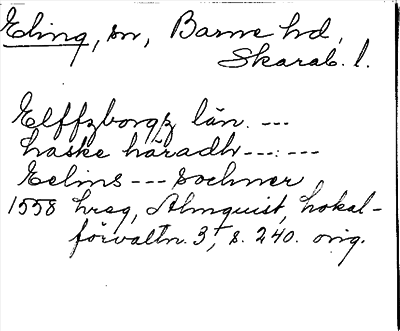 Eling, sn, Barne hd,
Skarab. l.
Elffzborgz län. ---
Laske häradh ---: ---
Eelins --- sochner
1558 hreg, Almquist, Lokal-
förvaltn. 3, s. 240. orig.